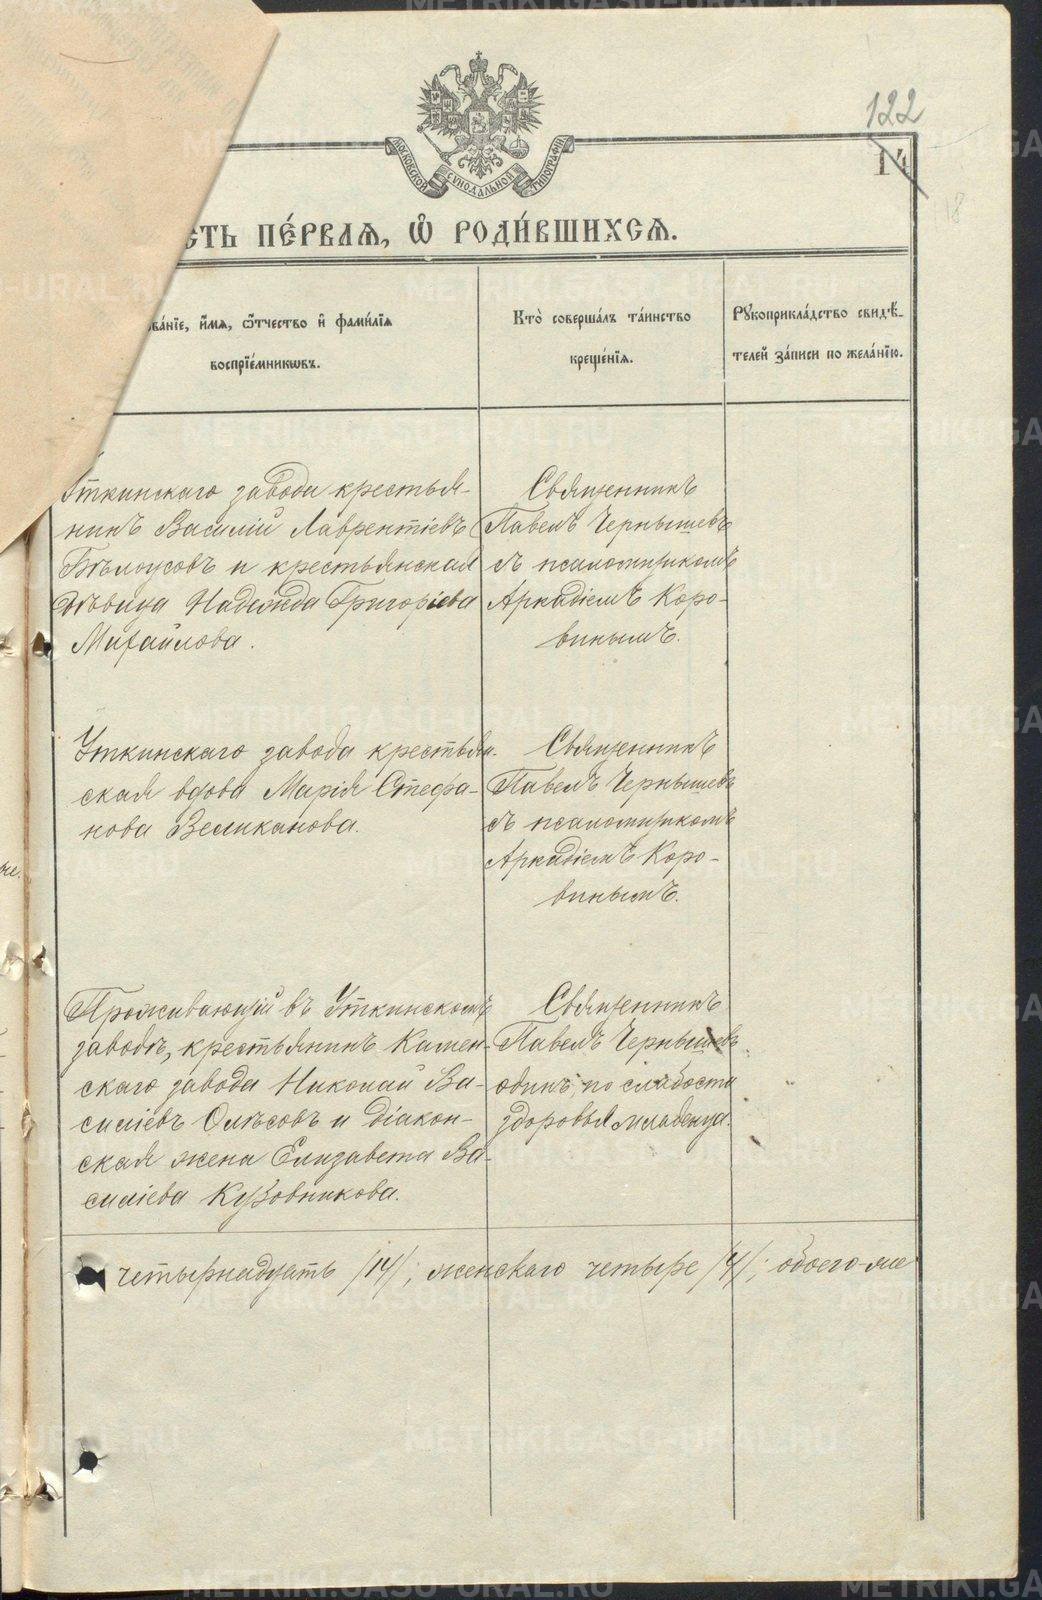 122
14
18
МОСКОВСКОЙ СѴНОДАЛЬНОЙ ТИПОГРАФІИ
СТЬ ПЕ́РВАѦ, Ѡ҆ РОДИ́ВШИХСѦ.
ва́нїе, и҆́мѧ, ѻ҆́тчество и҆ фами́лїѧ
воспрїе́мникѡвъ.
Кто̀ соверша́лъ та́инство
креще́нїѧ.
Рꙋкоприкла́дство свидѣ́-
телей за́писи по жела́нїю.
Уткинскаго завода крестья-
нинъ Василій Лаврентіевъ
Бѣлоусовъ и крестьянская
дѣвица Надежда Григоріева
Михайлова.
Священникъ
Павелъ Чернышевъ
съ псаломщикомъ
Аркадіемъ Коро-
винымъ.
Уткинскаго завода крестьян-
ская вдова Марія Стефа-
нова Великанова.
Священникъ
Павелъ Чернышевъ
съ псаломщикомъ
Аркадіемъ Коро-
винымъ.
Проживающій въ Уткинскомъ
заводѣ, крестьянинъ Камен-
скаго завода Николай Ва-
силіевъ Олѣсовъ и діакон-
ская жена Елизавета Ва-
силіева Кузовникова.
Священникъ
Павелъ Чернышевъ
одинъ, по слабости
здоровья младенца.
четырнадцать /14/, женскаго четыре /4/; обоего-же
METRIKI.GASO-URAL.RU